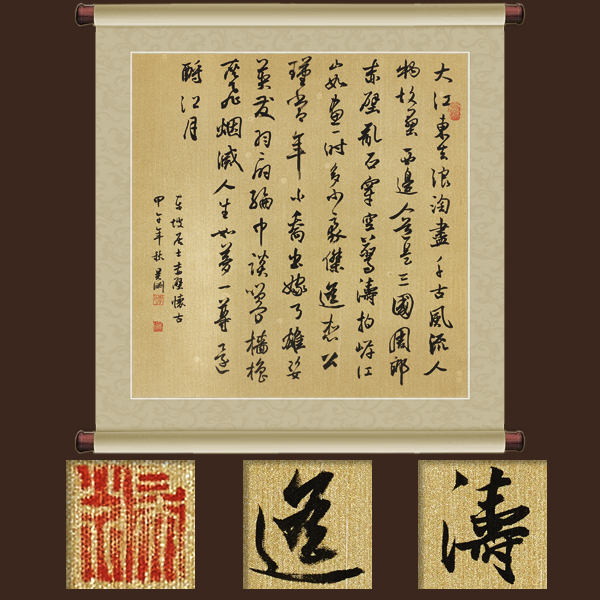 大江東去浪淘盡千古風流人
物故壘西邊人道是三國周郎
赤壁亂石穿空驚濤拍岸江
山如畫一時多少豪傑遙想公
瑾當年小喬出嫁了雄姿
英發羽扇綸巾談笑間檣櫓
灰飛烟滅人生如夢一尊還
酹江月
東坡居士赤壁懷古
甲午年秋
遙
濤